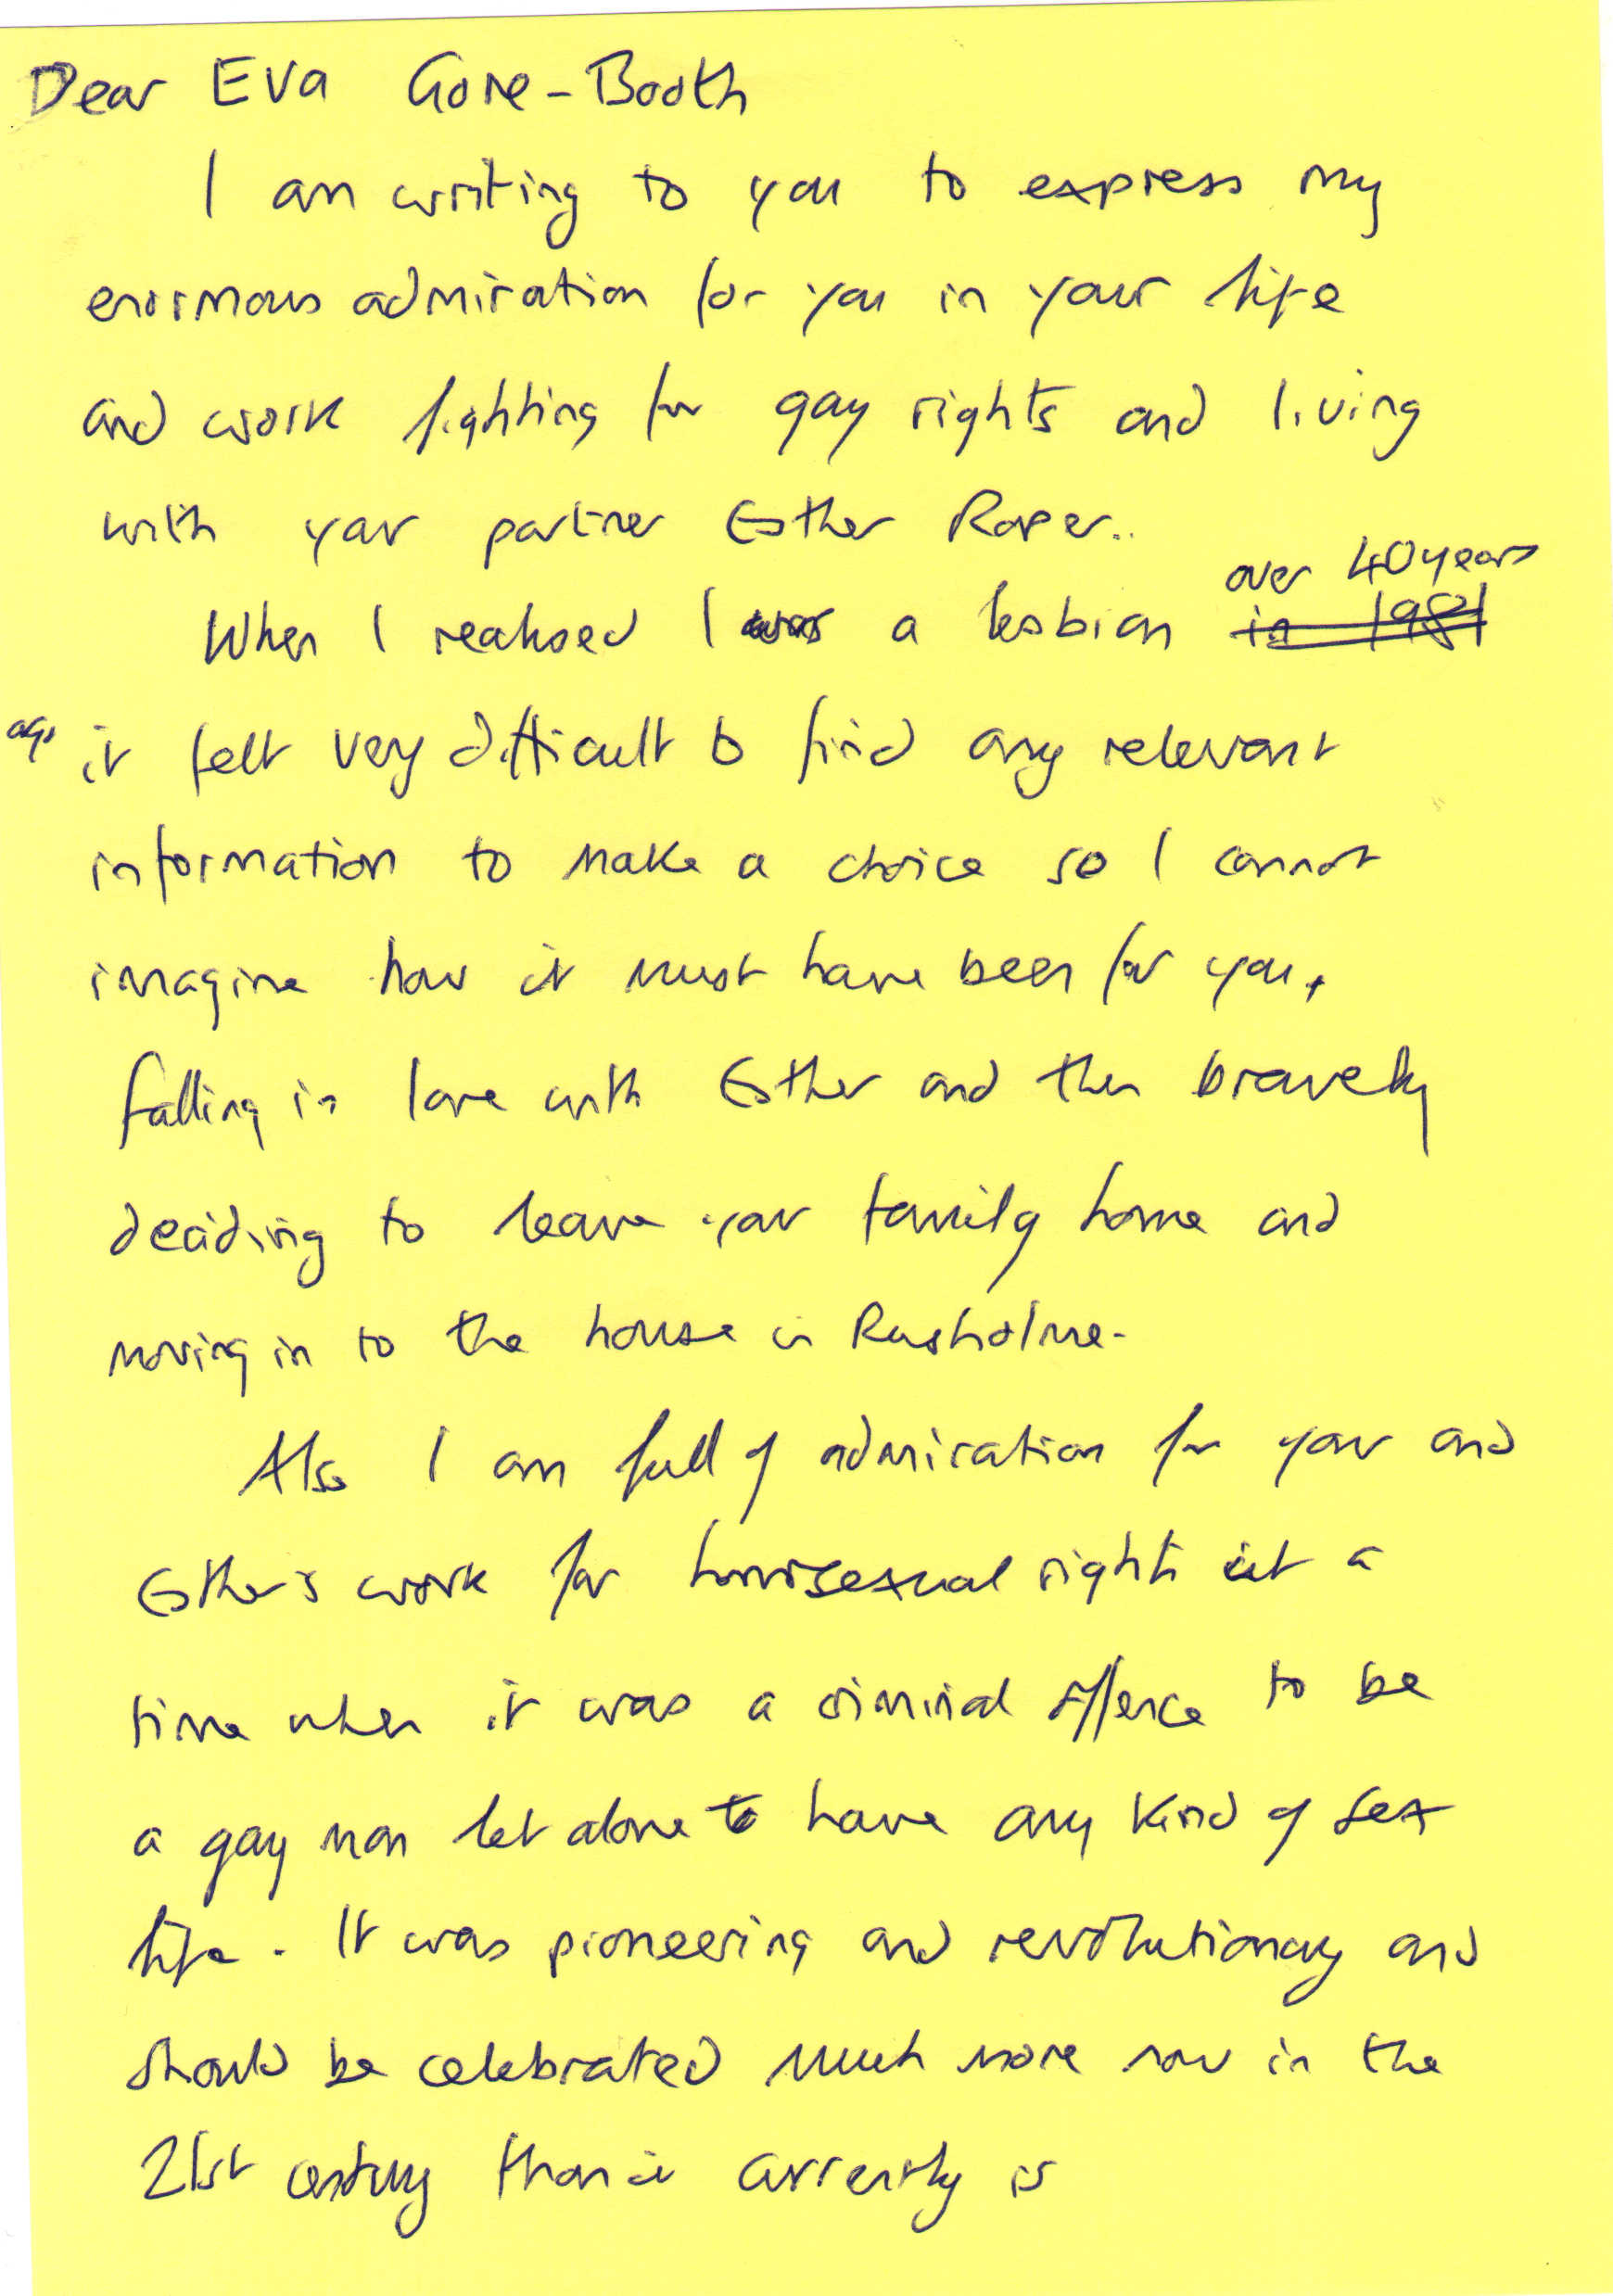 Dear Eva Gore-Booth
I am writing to you to express my
enormous admiration for you in your life
and work fighting for gay rights and living
with your partner Esther Roper..
over 40 years
When I realised I was a lesbian in 1981
ago it felt very difficult to find any relevant
information to make a choice so I cannot
imagine how it must have been for you,
falling in love with Esther and then bravely
deciding to leave your family home and
moving in to the house in Rusholme.
Also I am full of admiration for your and
Esther's work for homosexual rights at a
time when it was a criminal offence to be
a gay man let alone to have any kind of sex
life. It was pioneering and revolutionary and
should be celebrated much more now in the
21st century than it currently is